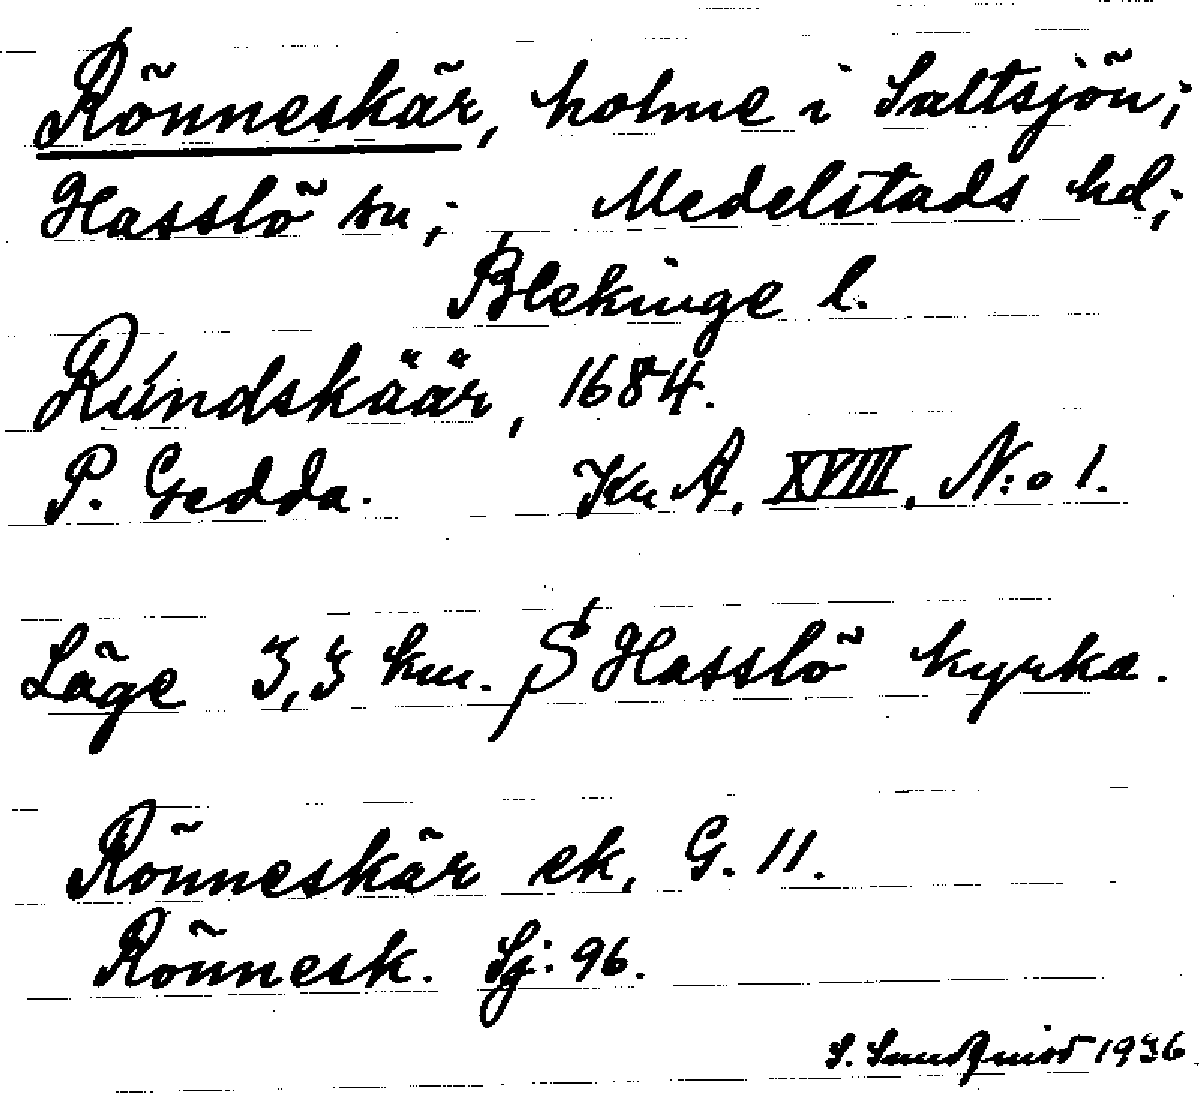 Rönneskär, holme i Saltsjön;
Hasslö sn; Medelstads hd;
Blekinge l.
Rúndskäär, 1684.
P. Gedda. Kn A. XVIII, N:o 1.
Läge 3,3 km. S Hasslö kyrka.
Rönneskär ek. G. 11.
Rönnesk. Sj: 96.
S. Sundqvist 1936